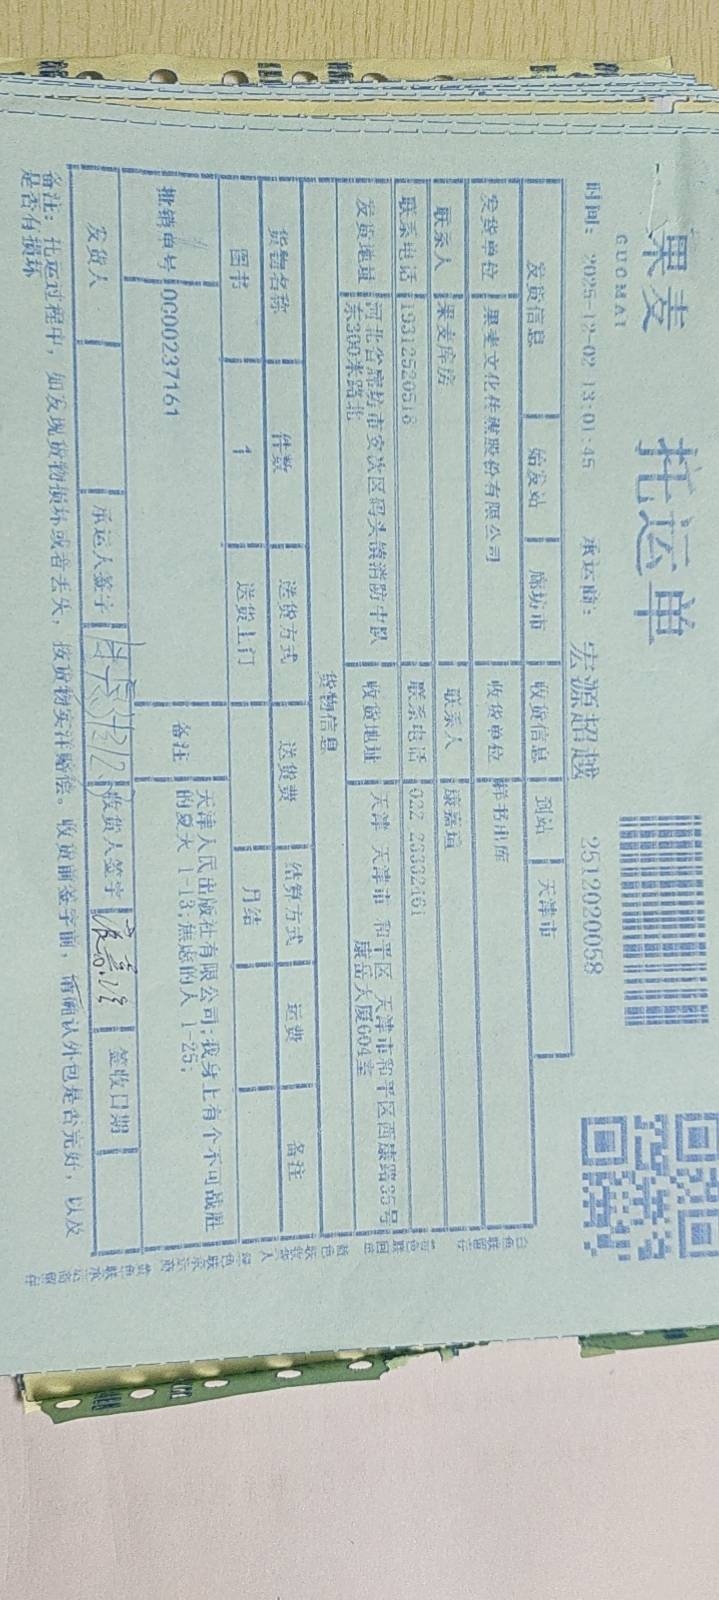 果麦
GUOMAI
托运单
时间： 2025-12-02 13:01:45 承运商： 宏源超越 2512020058
发货信息 始发站 廊坊市 收货信息 到站 天津市
发货单位 果麦文化传媒股份有限公司 收货单位 样书出库
联系人 果麦库房 联系人
联系电话 19312520516 联系电话 022-23332161
发货地址 河北省廊坊市安次区码头镇消防中队 收货地址 天津 天津市 和平区 天津市和平区西康路35号
东300米路北 康岳大厦604室
货物信息
货物名称 件数 送货方式 送货费 结算方式 运费 备注
图书 1 送货上门 月结
批销单号 0000237161 备注 天津人民出版社有限公司;我身上有个不可战胜
的夏天 1-13;焦虑的人 1-25;
发货人 承运人签字 收货人签字 签收日期
备注：托运过程中，如发现货物损坏或者丢失，按货物实洋赔偿。收货前签字前，请确认外包是否完好，以及
是否有损坏